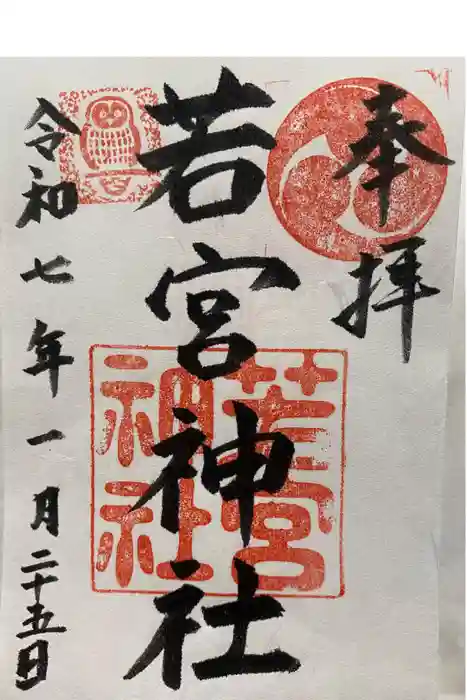 奉拝
若宮神社
若宮
神社
令和七年一月二十五日